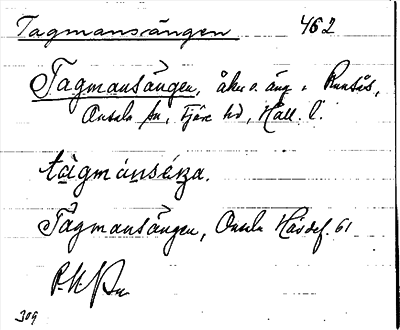 Tagmansängen 462
Tagmansängen, åker o. äng i Runsås,
Onsala sn, Fjäre hd, Hall. l.
tàgmánséŋa.
Tågmansängen, Onsala Häsdef. 61
309